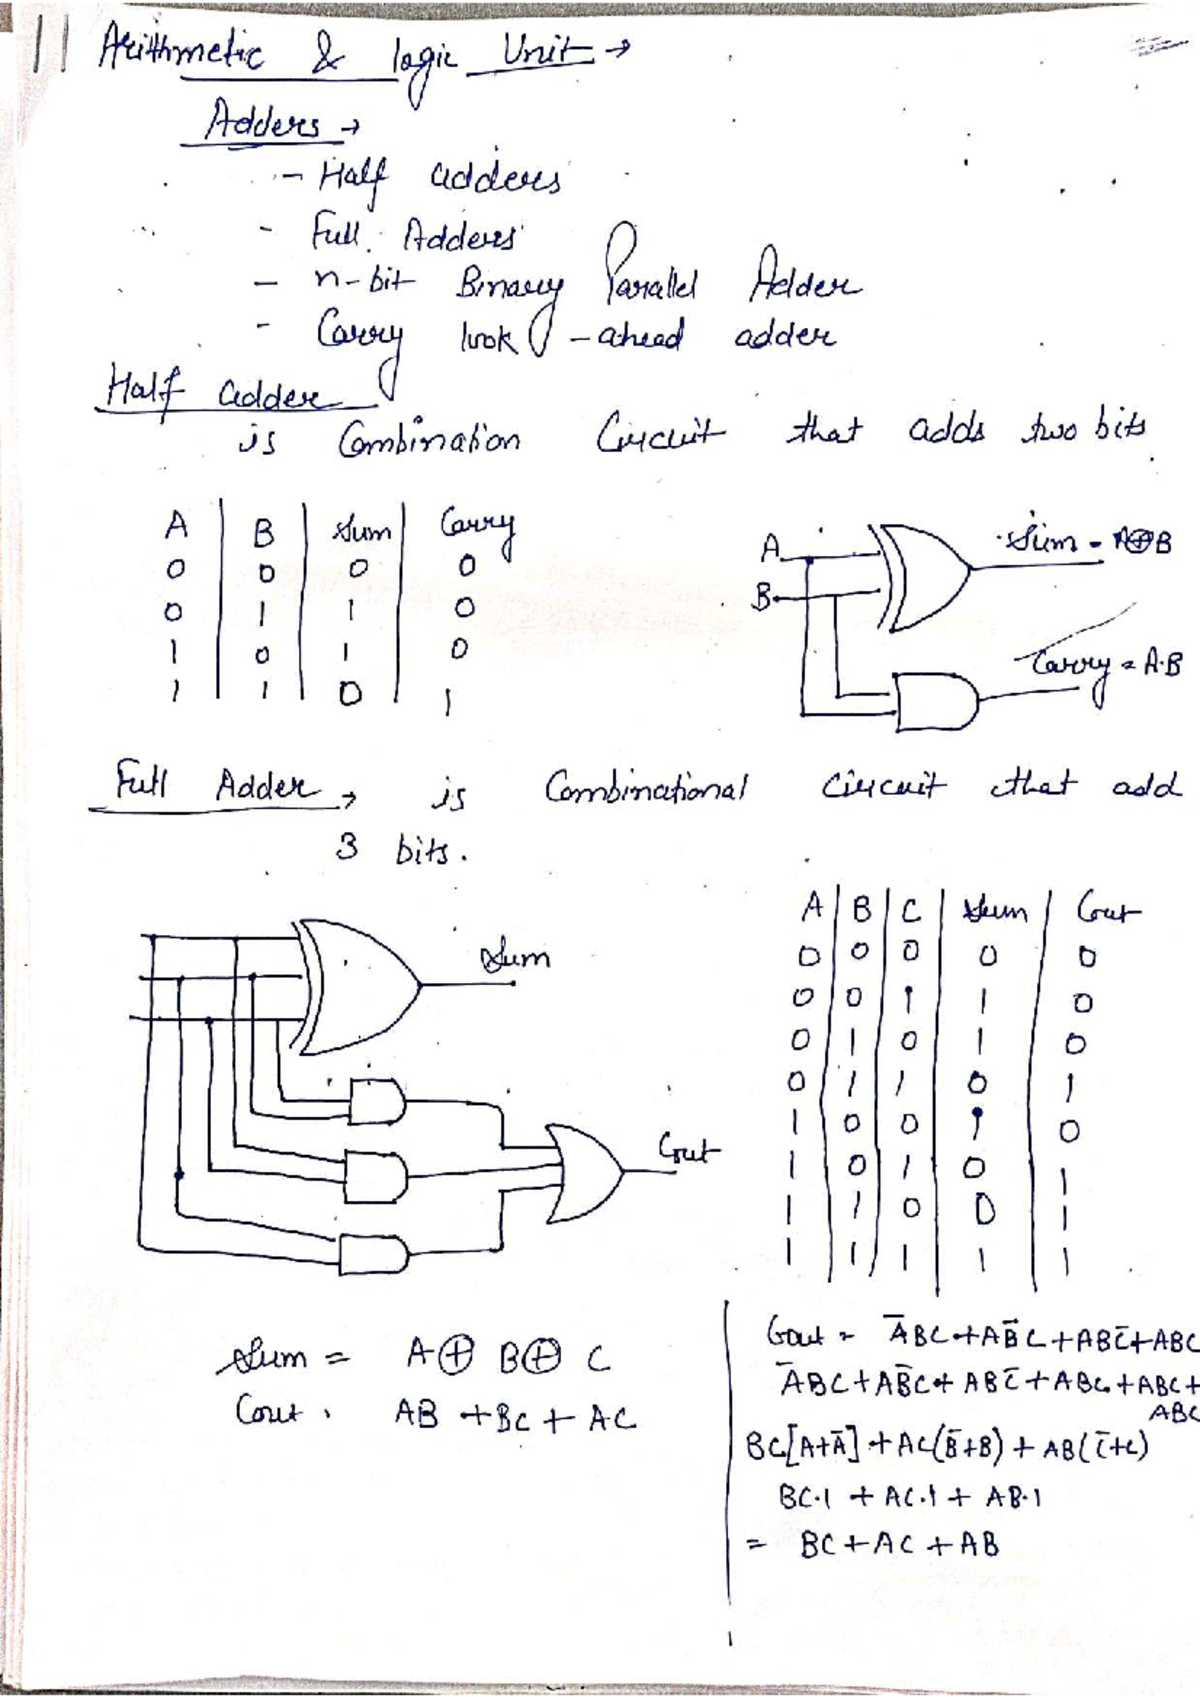 Arithmetic & logic Unit →
Adders →
- Half adders
- Full Adders
- n-bit Binary Parallel Adder
- Carry look-ahead adder
Half adder
is Combination Circuit that adds two bits
A | B | Sum | Carry
0 0 0 0
0 1 1 0
1 0 1 0
1 1 0 1
A
B
Sum = A⊕B
Carry = A·B
Full Adder → is Combinational circuit that add
3 bits.
Sum
Cout
A | B | C | Sum | Cout
0 0 0 0 0
0 0 1 1 0
0 1 0 1 0
0 1 1 0 1
1 0 0 1 0
1 0 1 0 1
1 1 0 0 1
1 1 1 1 1
Sum = A⊕B⊕C
Cout, AB + BC + AC
Cout = A̅BC + AB̅C + ABC̅ + ABC
A̅BC + AB̅C + ABC̅ + ABC + ABC +
ABC
BC[A+A̅] + AC(B̅+B) + AB(C̅+C)
BC·1 + AC·1 + AB·1
= BC + AC + AB